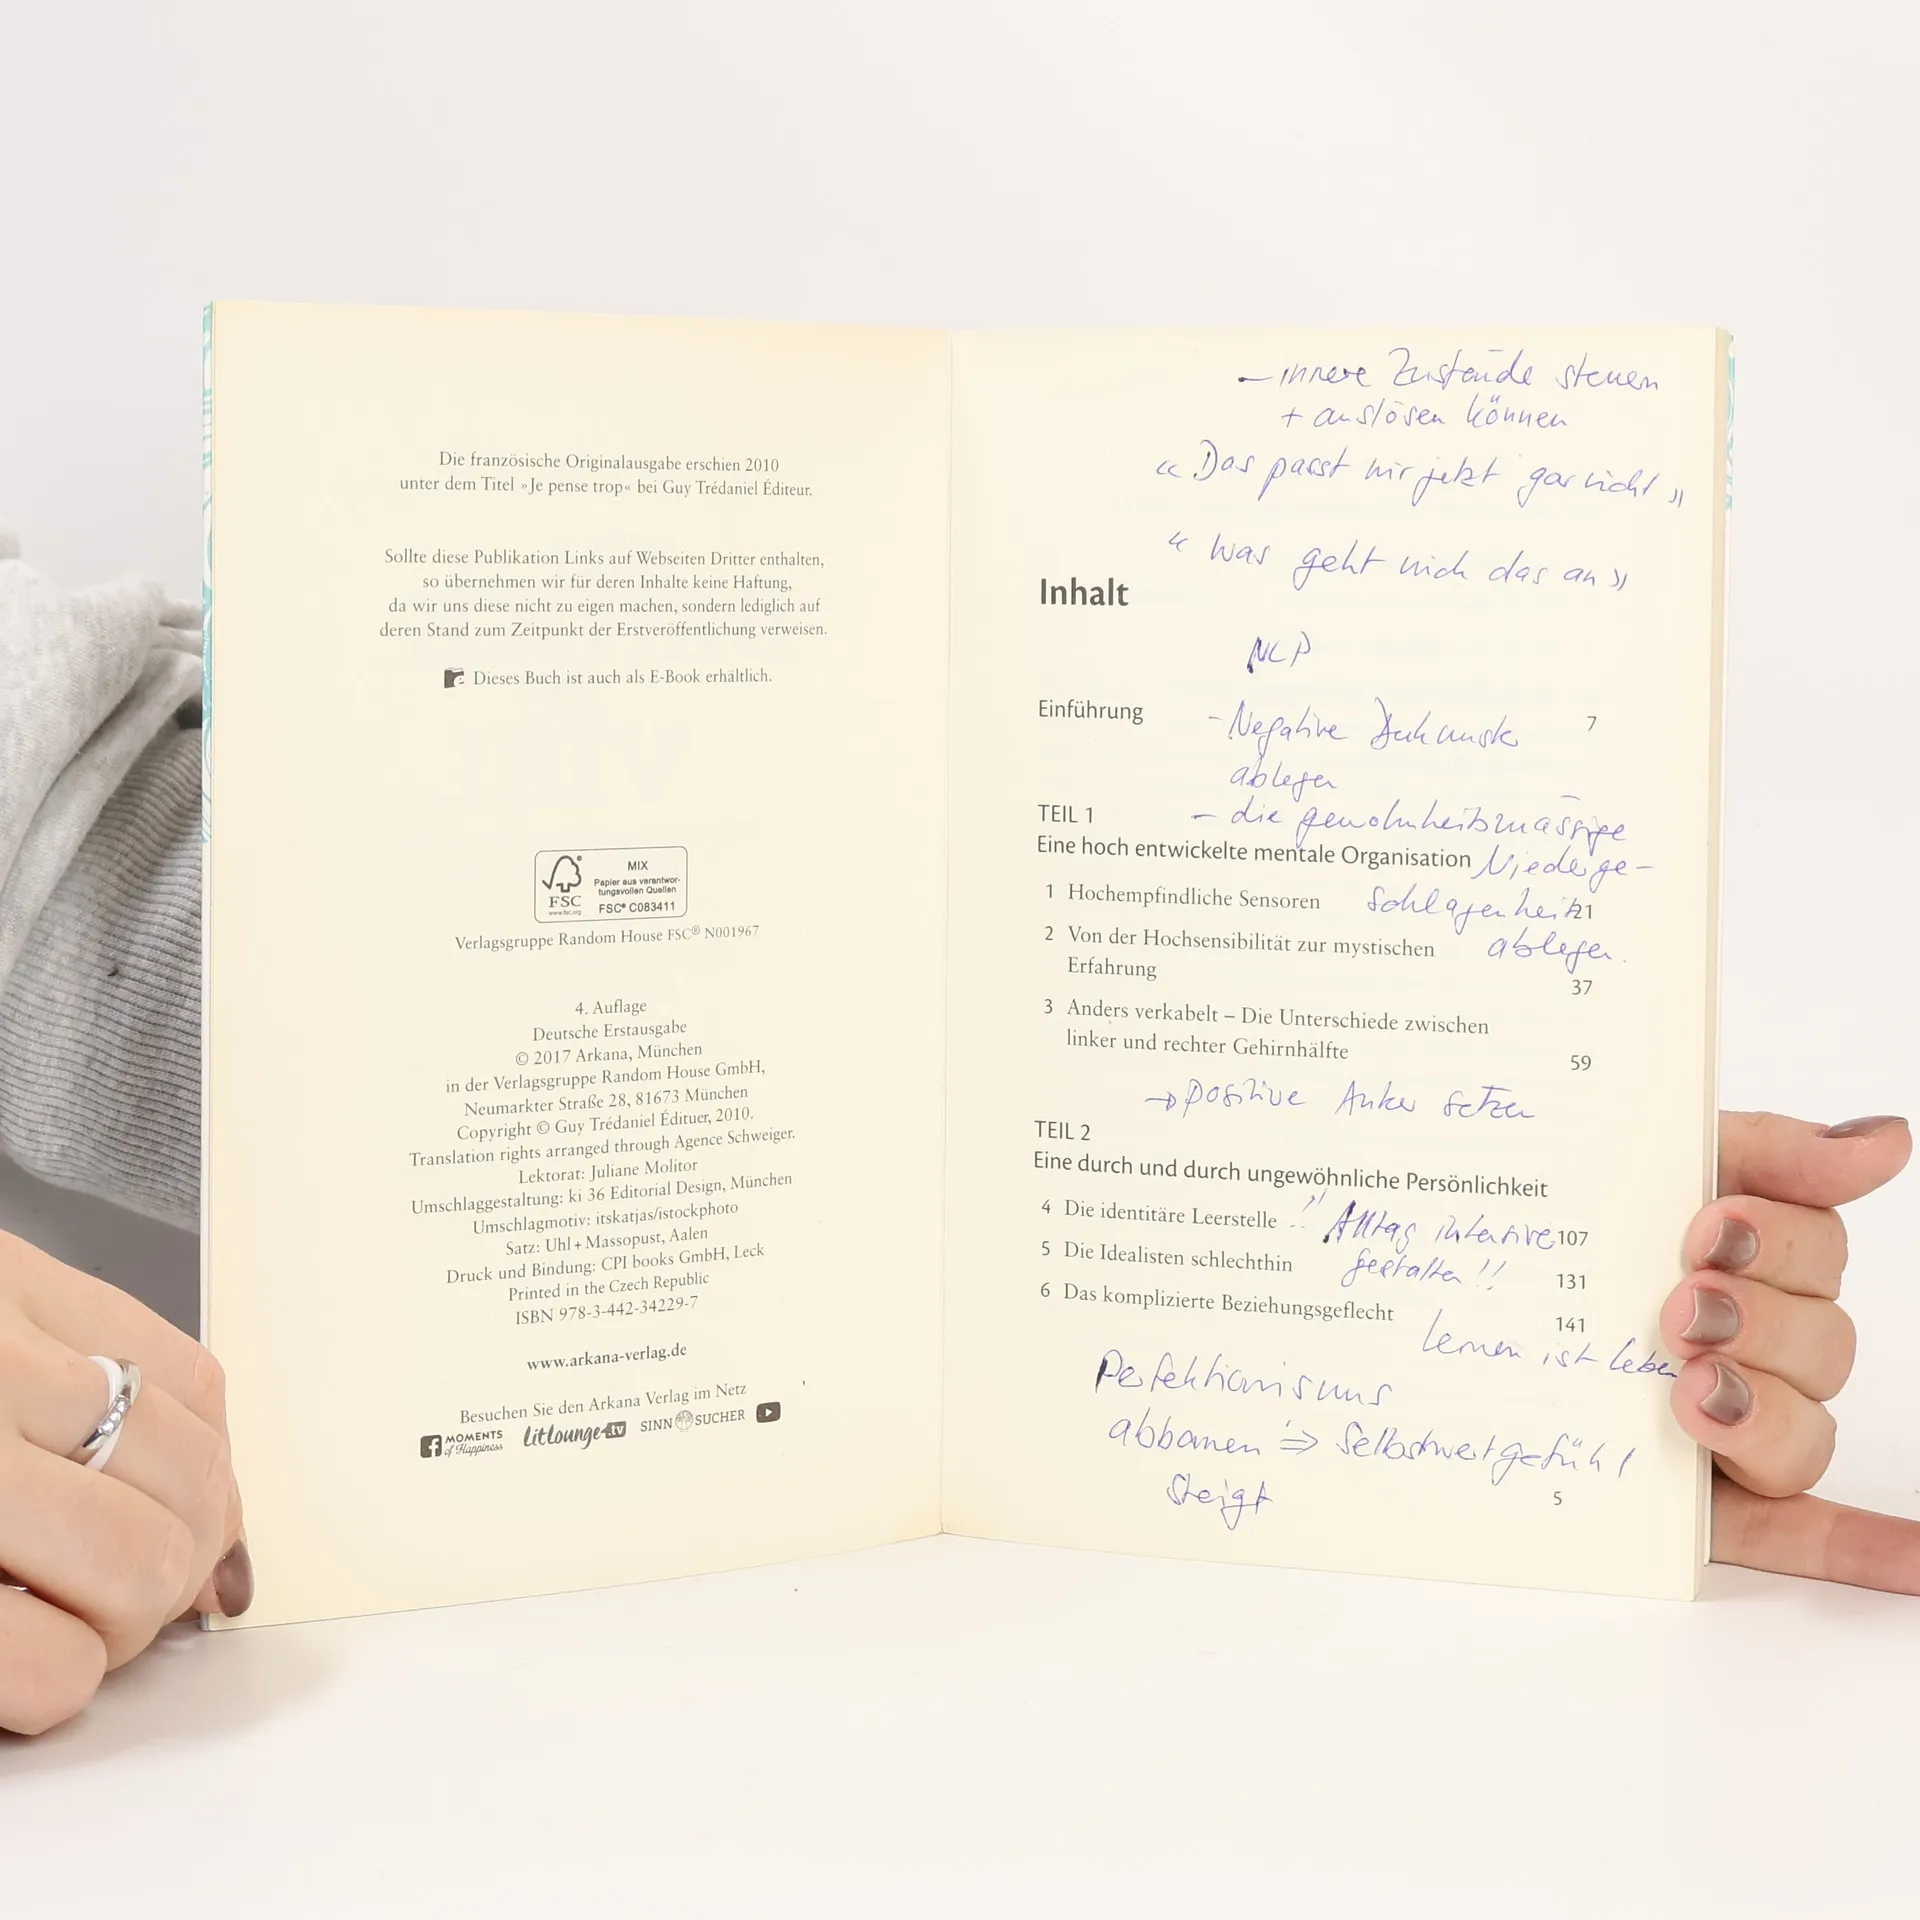 Die französische Originalausgabe erschien 2010
unter dem Titel »Je pense trop« bei Guy Trédaniel Éditeur.
Sollte diese Publikation Links auf Webseiten Dritter enthalten,
so übernehmen wir für deren Inhalte keine Haftung,
da wir uns diese nicht zu eigen machen, sondern lediglich auf
deren Stand zum Zeitpunkt der Erstveröffentlichung verweisen.
Dieses Buch ist auch als E-Book erhältlich.
MIX
Papier aus verantwor-
tungsvollen Quellen
FSC
www.fsc.org
FSC® C083411
Verlagsgruppe Random House FSC® N001967
4. Auflage
Deutsche Erstausgabe
© 2017 Arkana, München
in der Verlagsgruppe Random House GmbH,
Neumarkter Straße 28, 81673 München
Copyright © Guy Trédaniel Édituer, 2010.
Translation rights arranged through Agence Schweiger.
Lektorat: Juliane Molitor
Umschlaggestaltung: ki 36 Editorial Design, München
Umschlagmotiv: itskatjas/istockphoto
Satz: Uhl + Massopust, Aalen
Druck und Bindung: CPI books GmbH, Leck
Printed in the Czech Republic
ISBN 978-3-442-34229-7
www.arkana-verlag.de
Besuchen Sie den Arkana Verlag im Netz
MOMENTS
of Happiness
LitLounge.tv
SINN SUCHER
– innere Zustände steuern
+ auslösen können
"Das passt mir jetzt gar nicht"
"Was geht mich das an"
Inhalt
NLP
Einführung 7
- Negative Denkmuster
ablegen
TEIL 1
– die gewohnheitsmässige
Eine hoch entwickelte mentale Organisation
Niederge-
1 Hochempfindliche Sensoren 21
schlagenheit
2 Von der Hochsensibilität zur mystischen
ablegen.
Erfahrung 37
3 Anders verkabelt – Die Unterschiede zwischen
linker und rechter Gehirnhälfte 59
→ positive Anker setzen
TEIL 2
Eine durch und durch ungewöhnliche Persönlichkeit
4 Die identitäre Leerstelle 107
!! Alltag intensive
5 Die Idealisten schlechthin 131
gestalten!!
6 Das komplizierte Beziehungsgeflecht 141
lernen ist leben
Perfektionismus
abbauen ⇒ Selbstwertgefühl
steigt
5